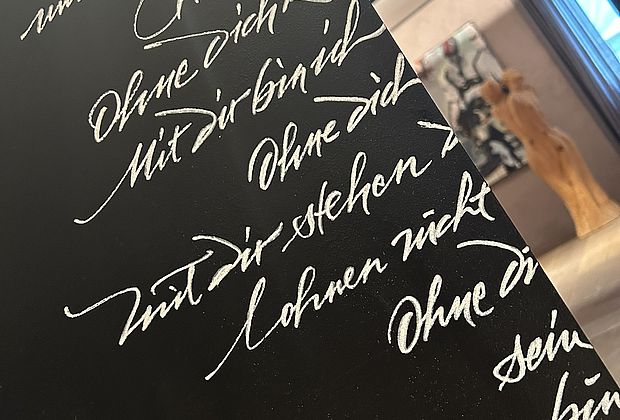 Ohne dich
Mit dir bin ich
Ohne dich
mit dir stehen
lohnen nicht
Ohne di
sein
bin